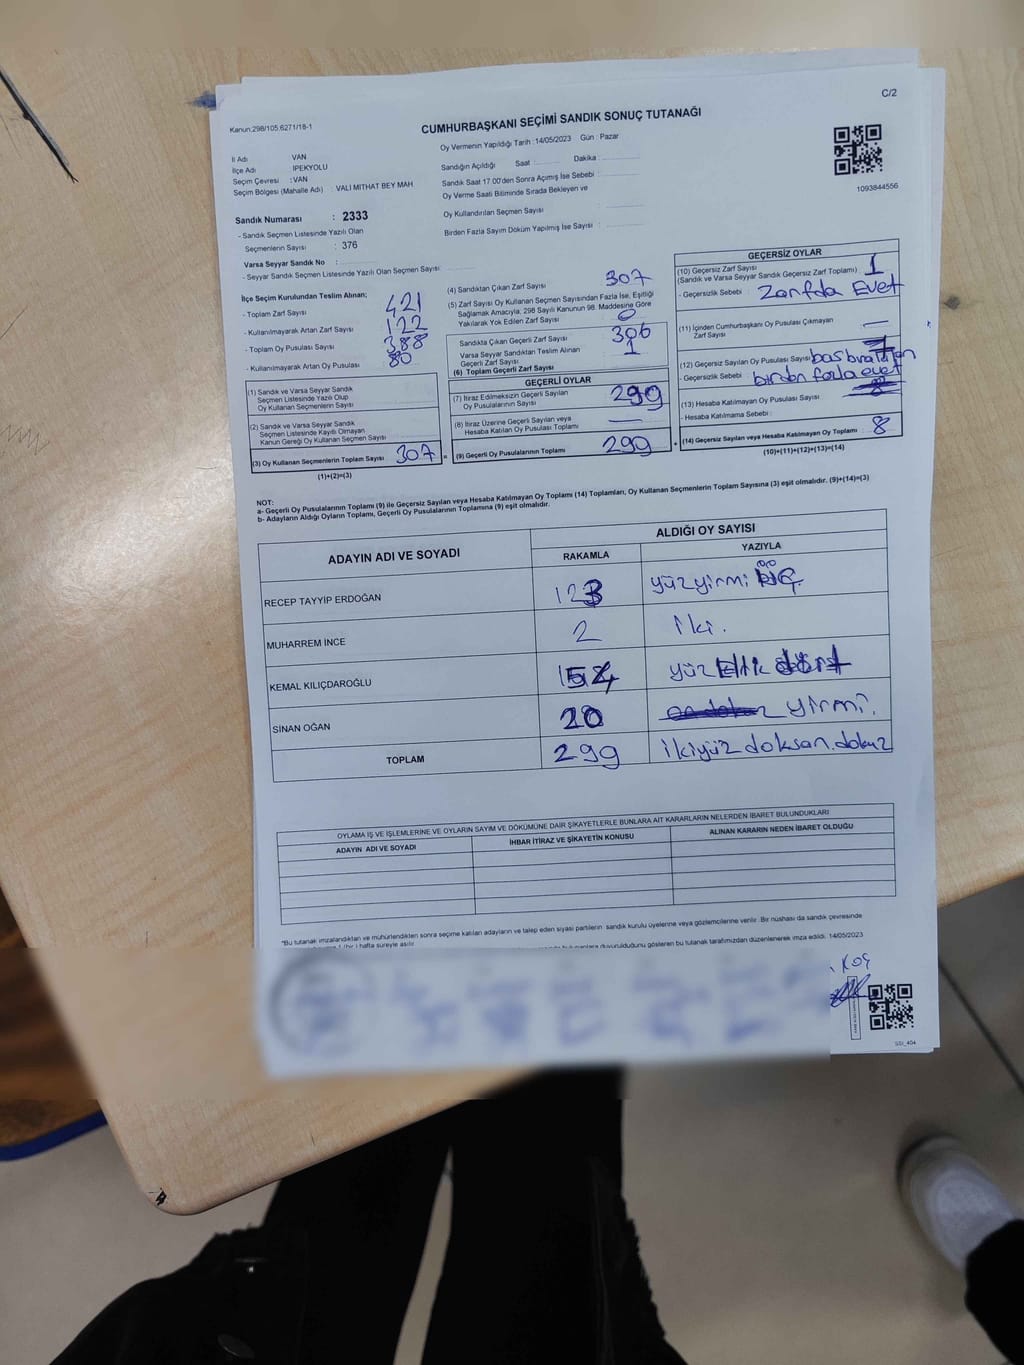 C/2
Kanun:298/105.6271/18-1
CUMHURBAŞKANI SEÇİMİ SANDIK SONUÇ TUTANAĞI
Oy Vermenin Yapıldığı Tarih :14/05/2023 Gün : Pazar
1093844556
İl Adı VAN
İlçe Adı : İPEKYOLU
Seçim Çevresi : VAN
Seçim Bölgesi (Mahalle Adı) : VALI MITHAT BEY MAH
Sandık Numarası : 2333
- Sandık Seçmen Listesinde Yazılı Olan
Seçmenlerin Sayısı : 376
Varsa Seyyar Sandık No :
- Seyyar Sandık Seçmen Listesinde Yazılı Olan Seçmen Sayısı:
Sandığın Açıldığı Saat : Dakika :
Sandık Saat 17.00'den Sonra Açımış İse Sebebi :
Oy Verme Saati Bitiminde Sırada Bekleyen ve
Oy Kullandırılan Seçmen Sayısı :
Birden Fazla Sayım Döküm Yapılmış İse Sayısı :
İlçe Seçim Kurulundan Teslim Alınan;
- Toplam Zarf Sayısı 421
- Kullanılmayarak Artan Zarf Sayısı 122
- Toplam Oy Pusulası Sayısı 388
- Kullanılmayarak Artan Oy Pusulası 80
(1) Sandık ve Varsa Seyyar Sandık
Seçmen Listesinde Yazılı Olup
Oy Kullanan Seçmenlerin Sayısı
(2) Sandık ve Varsa Seyyar Sandık
Seçmen Listesinde Kayıtlı Olmayan
Kanun Gereği Oy Kullanan Seçmen Sayısı
(3) Oy Kullanan Seçmenlerin Toplam Sayısı 307 =
(1)+(2)=(3)
(4) Sandıktan Çıkan Zarf Sayısı 307
(5) Zarf Sayısı Oy Kullanan Seçmen Sayısından Fazla İse, Eşitliği
Sağlamak Amacıyla, 298 Sayılı Kanunun 98. Maddesine Göre
Yakılarak Yok Edilen Zarf Sayısı 0
Sandıkta Çıkan Geçerli Zarf Sayısı 306
Varsa Seyyar Sandıktan Teslim Alınan
Geçerli Zarf Sayısı 1
(6) Toplam Geçerli Zarf Sayısı
GEÇERLİ OYLAR
(7) İtiraz Edilmeksizin Geçerli Sayılan
Oy Pusulalarının Sayısı 299
(8) İtiraz Üzerine Geçerli Sayılan veya
Hesaba Katılan Oy Pusulası Toplamı —
(9) Geçerli Oy Pusulalarının Toplamı 299 +
GEÇERSİZ OYLAR
(10) Geçersiz Zarf Sayısı 1
(Sandık ve Varsa Seyyar Sandık Geçersiz Zarf Toplamı)
- Geçersizlik Sebebi : Zarfda Evet
(11) İçinden Cumhurbaşkanı Oy Pusulası Çıkmayan
Zarf Sayısı —
(12) Geçersiz Sayılan Oy Pusulası Sayısı
- Geçersizlik Sebebi : birden fazla evet
(13) Hesaba Katılmayan Oy Pusulası Sayısı
- Hesaba Katılmama Sebebi :
(14) Geçersiz Sayılan veya Hesaba Katılmayan Oy Toplamı 8
(10)+(11)+(12)+(13)=(14)
NOT:
a- Geçerli Oy Pusulalarının Toplamı (9) ile Geçersiz Sayılan veya Hesaba Katılmayan Oy Toplamı (14) Toplamları, Oy Kullanan Seçmenlerin Toplam Sayısına (3) eşit olmalıdır. (9)+(14)=(3)
b- Adayların Aldığı Oyların Toplamı, Geçerli Oy Pusulalarının Toplamına (9) eşit olmalıdır.
ADAYIN ADI VE SOYADI
ALDIĞI OY SAYISI
RAKAMLA YAZIYLA
RECEP TAYYİP ERDOĞAN 123 yüzyirmi üç
MUHARREM İNCE 2 iki.
KEMAL KILIÇDAROĞLU 154 yüz Elli dört
SİNAN OĞAN 20 yirmi.
TOPLAM 299 ikiyüz doksan.dokuz
OYLAMA İŞ VE İŞLEMLERİNE VE OYLARIN SAYIM VE DÖKÜMÜNE DAİR ŞİKAYETLERLE BUNLARA AİT KARARLARIN NELERDEN İBARET BULUNDUKLARI
ADAYIN ADI VE SOYADI İHBAR İTİRAZ VE ŞİKAYETİN KONUSU ALINAN KARARIN NEDEN İBARET OLDUĞU
*Bu tutanak imzalandıktan ve mühürlendikten sonra seçime katılan adayların ve talep eden siyasi partilerin sandık kurulu üyelerine veya gözlemcilerine verilir. Bir nüshası da sandık çevresinde
hafta süreyle asılır duyurulduğunu gösteren bu tutanak tarafımızdan düzenlenerek imza edildi. 14/05/2023
KOÇ
SSI_404